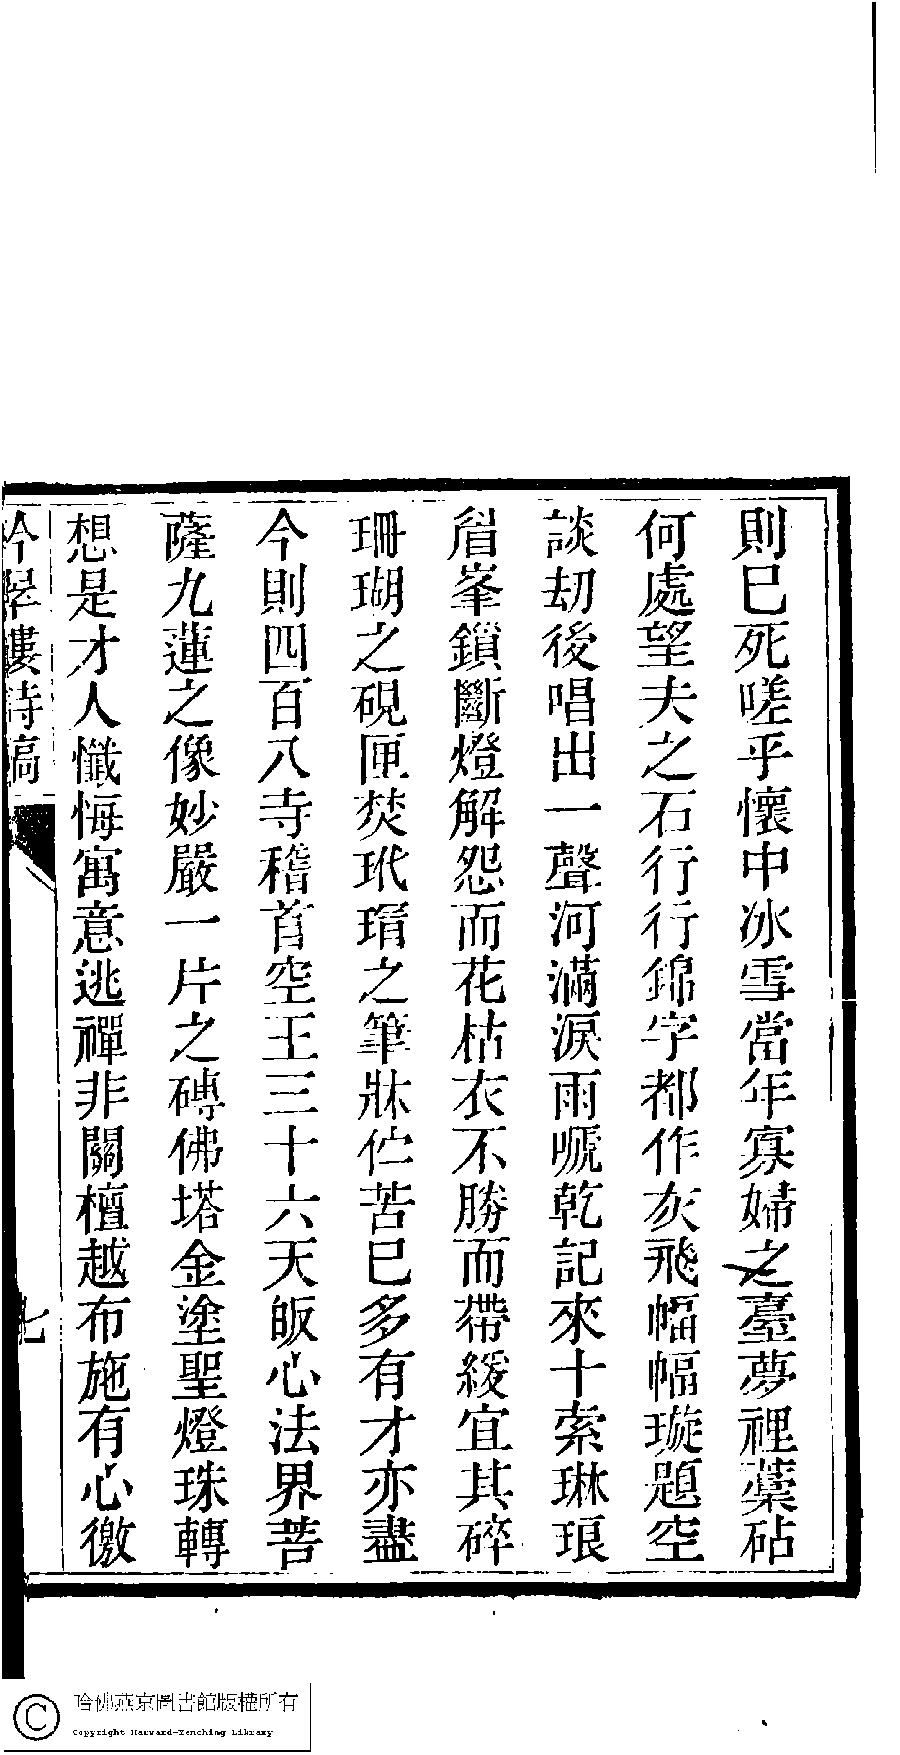 則巳死嗟乎懷中冰雪當年寡婦之臺夢裡藁砧
何處望夫之石行行錦字都作灰飛幅幅璇題空
談刼後唱出一聲河滿淚雨嗁乾記來十索琳琅
眉峯鎖斷燈解怨而花枯衣不勝而帶緩宜其碎
珊瑚之硯匣焚玳瑁之筆牀伫苦巳多有才亦盡
今則四百八寺稽首空王三十六天皈心法界菩
薩九蓮之像妙嚴一片之磚佛塔金塗聖燈珠轉
想是才人懺悔寓意逃禪非關檀越布施有心徼
吟翠樓詩稿
七
哈佛燕京圖書館版權所有
Copyright Harvard-Yenching Library